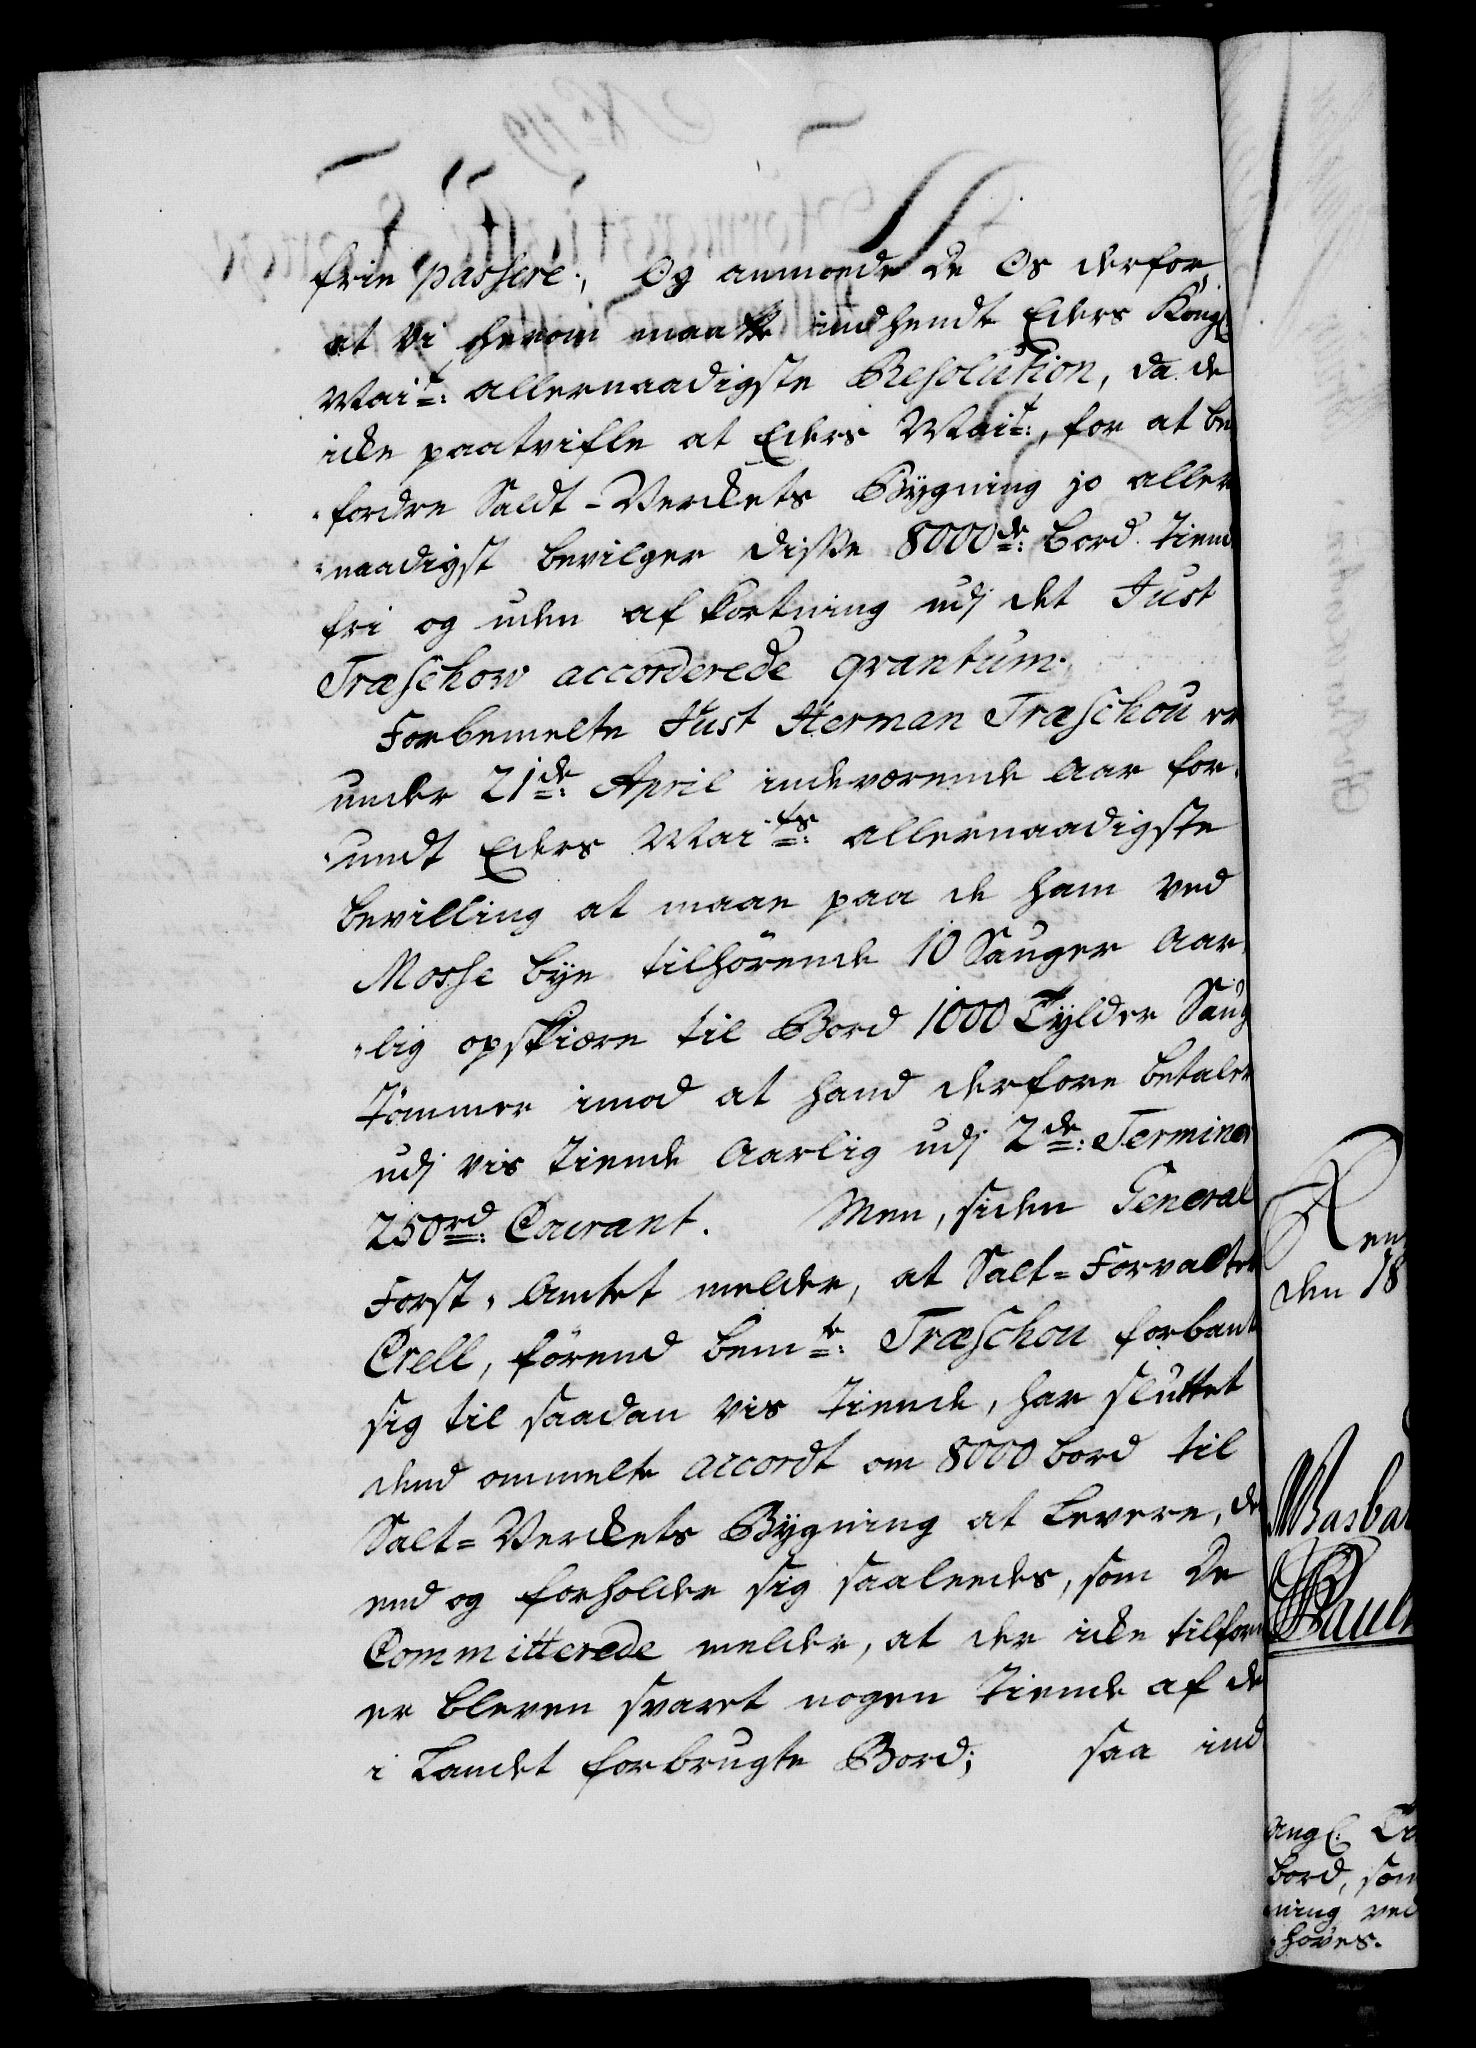 frie passere; Og anmoede de Os derfor,
at Vi herom maatte indhendte Eders Kongl
Mait: allernaadigste Resolution, da de
icke paatvifle at Eders Mait:, for at be
fordre Saldt-Verckets Bÿgning jo aller
naadigst bevilger disse 8000de: bord tiend
fri og uden afkortning udj det Just
Træschow accorderede qvantum.
Forbemelte Just Herman Træschou er
under 21de: April indeværende Aar for,
undt Eders Maits: allernaadigste
bevilling at maae paa de ham ved
Mosse bye tilhörende 10 Sauger Aar,
lig opskiære til Bord 1000 Tÿlder Saug
Tömmer imod at hand derfore betaler
udj vis tiende Aarlig udj 2de: Terminer
250rd: Courant. Men, siden General
Forst-Amtet melder, at Salt-Forvalter
Crell, förend bemte: Træschou forbandt
sig til saadan vis tiende, har sluttet
dend ommelte accordt om 8000 bord til
Salt-Verckets Bÿgning at levere, de
end og forholder sig saaleedes, som De
Committerede melder, at der icke tilforn
er bleven svaret nogen tiende af de
i Landet forbrugte Bord; saa ind
Ren
den 18
Paul
Angl:
bord, som
ning ved
höves.